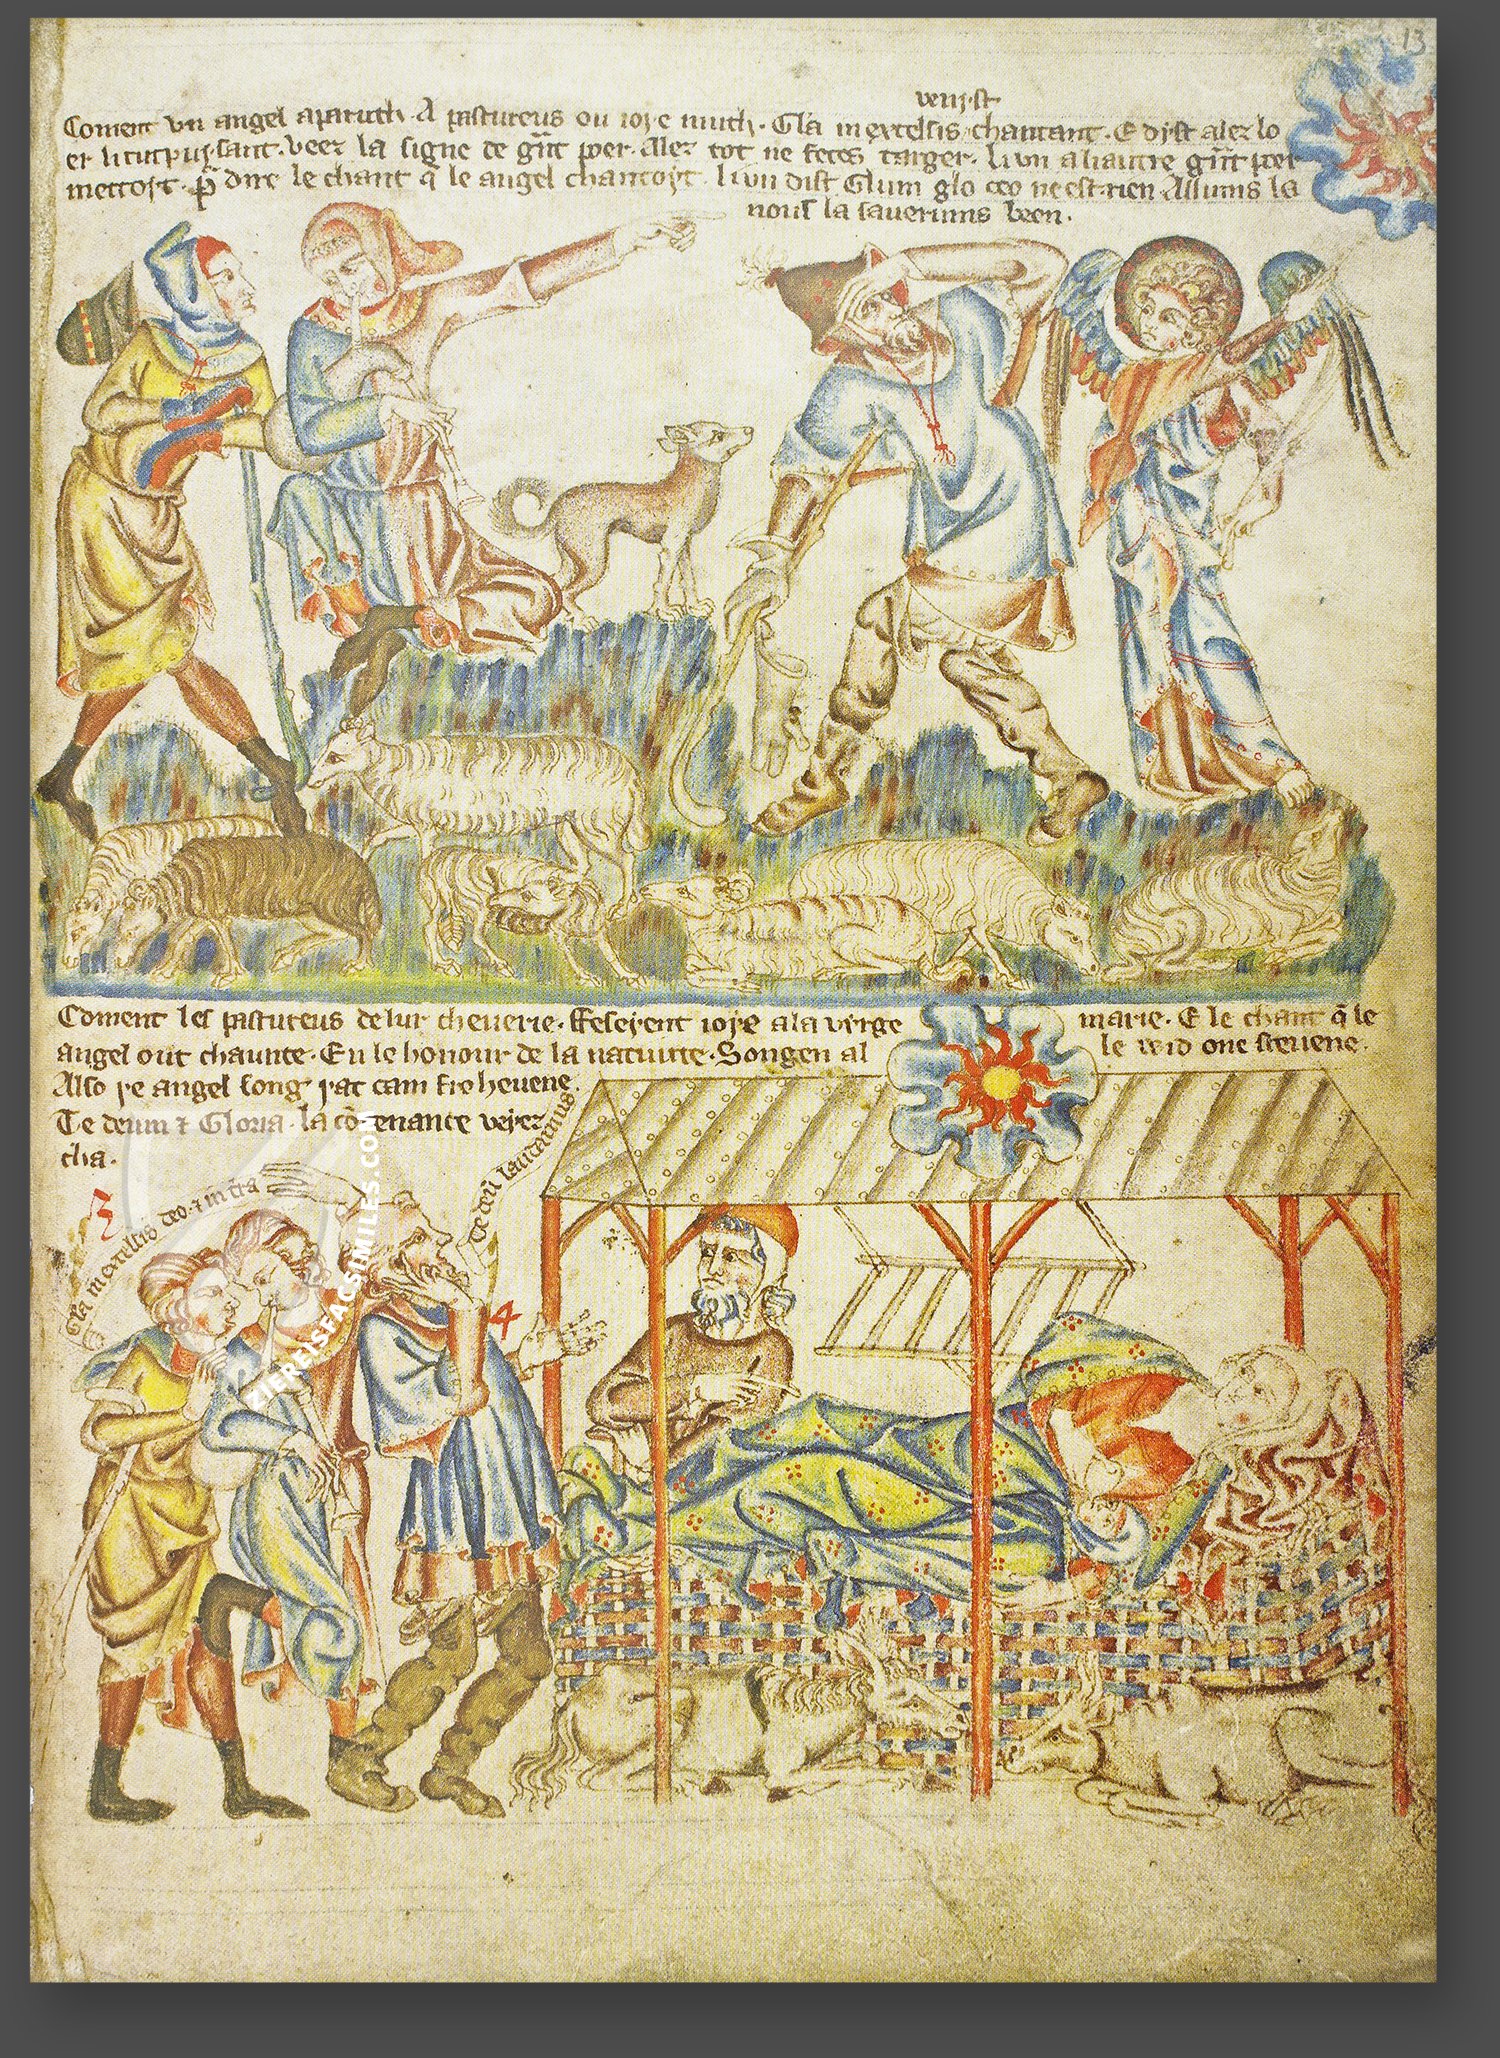 13
venist
Coment vn angel aparuth. A pastureus ou ioye muth. Gl'a in excelsis chantant. E dist alez lo
er li tut pussant. veez la signe de g͂nt poer. Alez tot ne fetes targer. li vn a li autre g͂nt poer
mettoyt. p̄ dire le chant q̄ le angel chantoyt. li vn dist Glum glo ceo ne est rien. Allums la
nous la saveriums been.
Coment les pastureus de lur cheuerie. Feseyent ioye a la virge marie. E le chant q̄ le
angel out chaunte. En le honour de la natiuite. Songen al le wid one steuene.
Also ye angel song yat cam fro heuene.
Te deum ⁊ Gloria. la cō tenance veyez
cha.
Gl'a in excelsis deo. ⁊ in t'ra
Te deū laudamus
4
ZIEREISFACSIMILES.COM